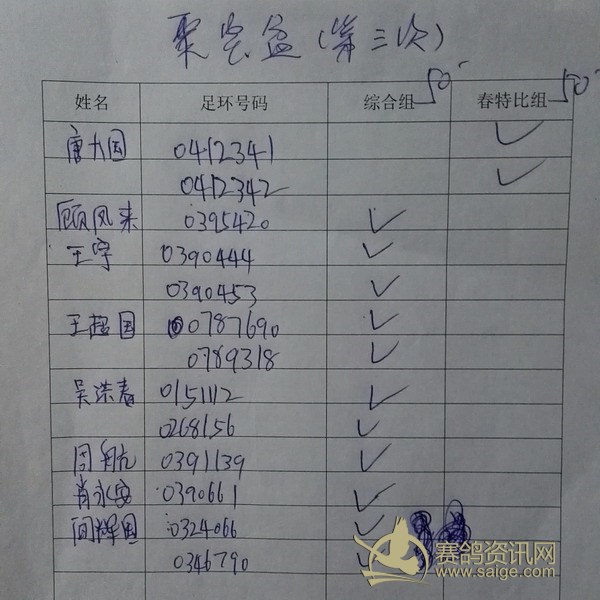 聚宝盆(第三次)
姓名 足环号码 综合组 50 春特比组 50
唐大国 0412341 ✓
0412342 ✓
顾凤来 0395420 ✓
王宇 0390444 ✓
0390453 ✓
王超国 0787690 ✓
0789318 ✓
吴洪春 0151112 ✓
0268156 ✓
周航 0391139 ✓
肖永安 0390661 ✓
闻辉国 0324066 ✓
0346790 ✓
赛鸽资讯网
www.saige.com